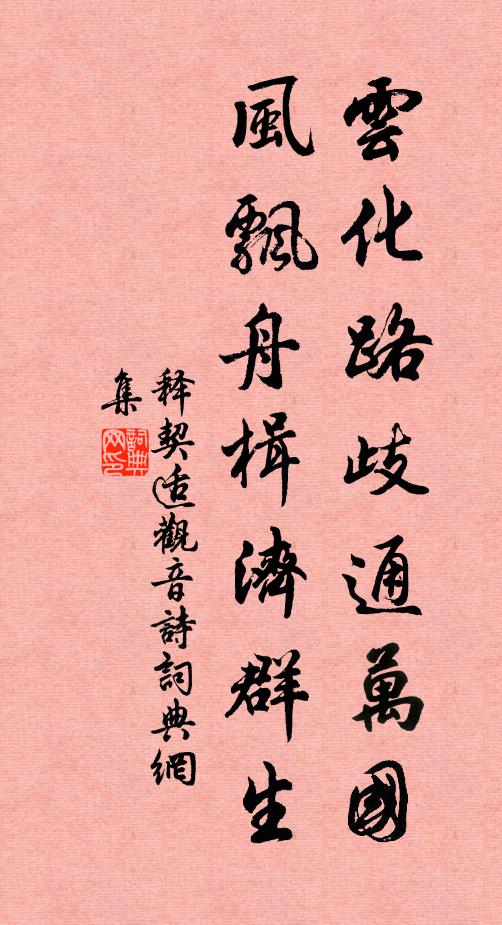 雲化路歧通萬國
風飄舟楫濟群生
释契适觀音詩詞典網
集
詞典
网印